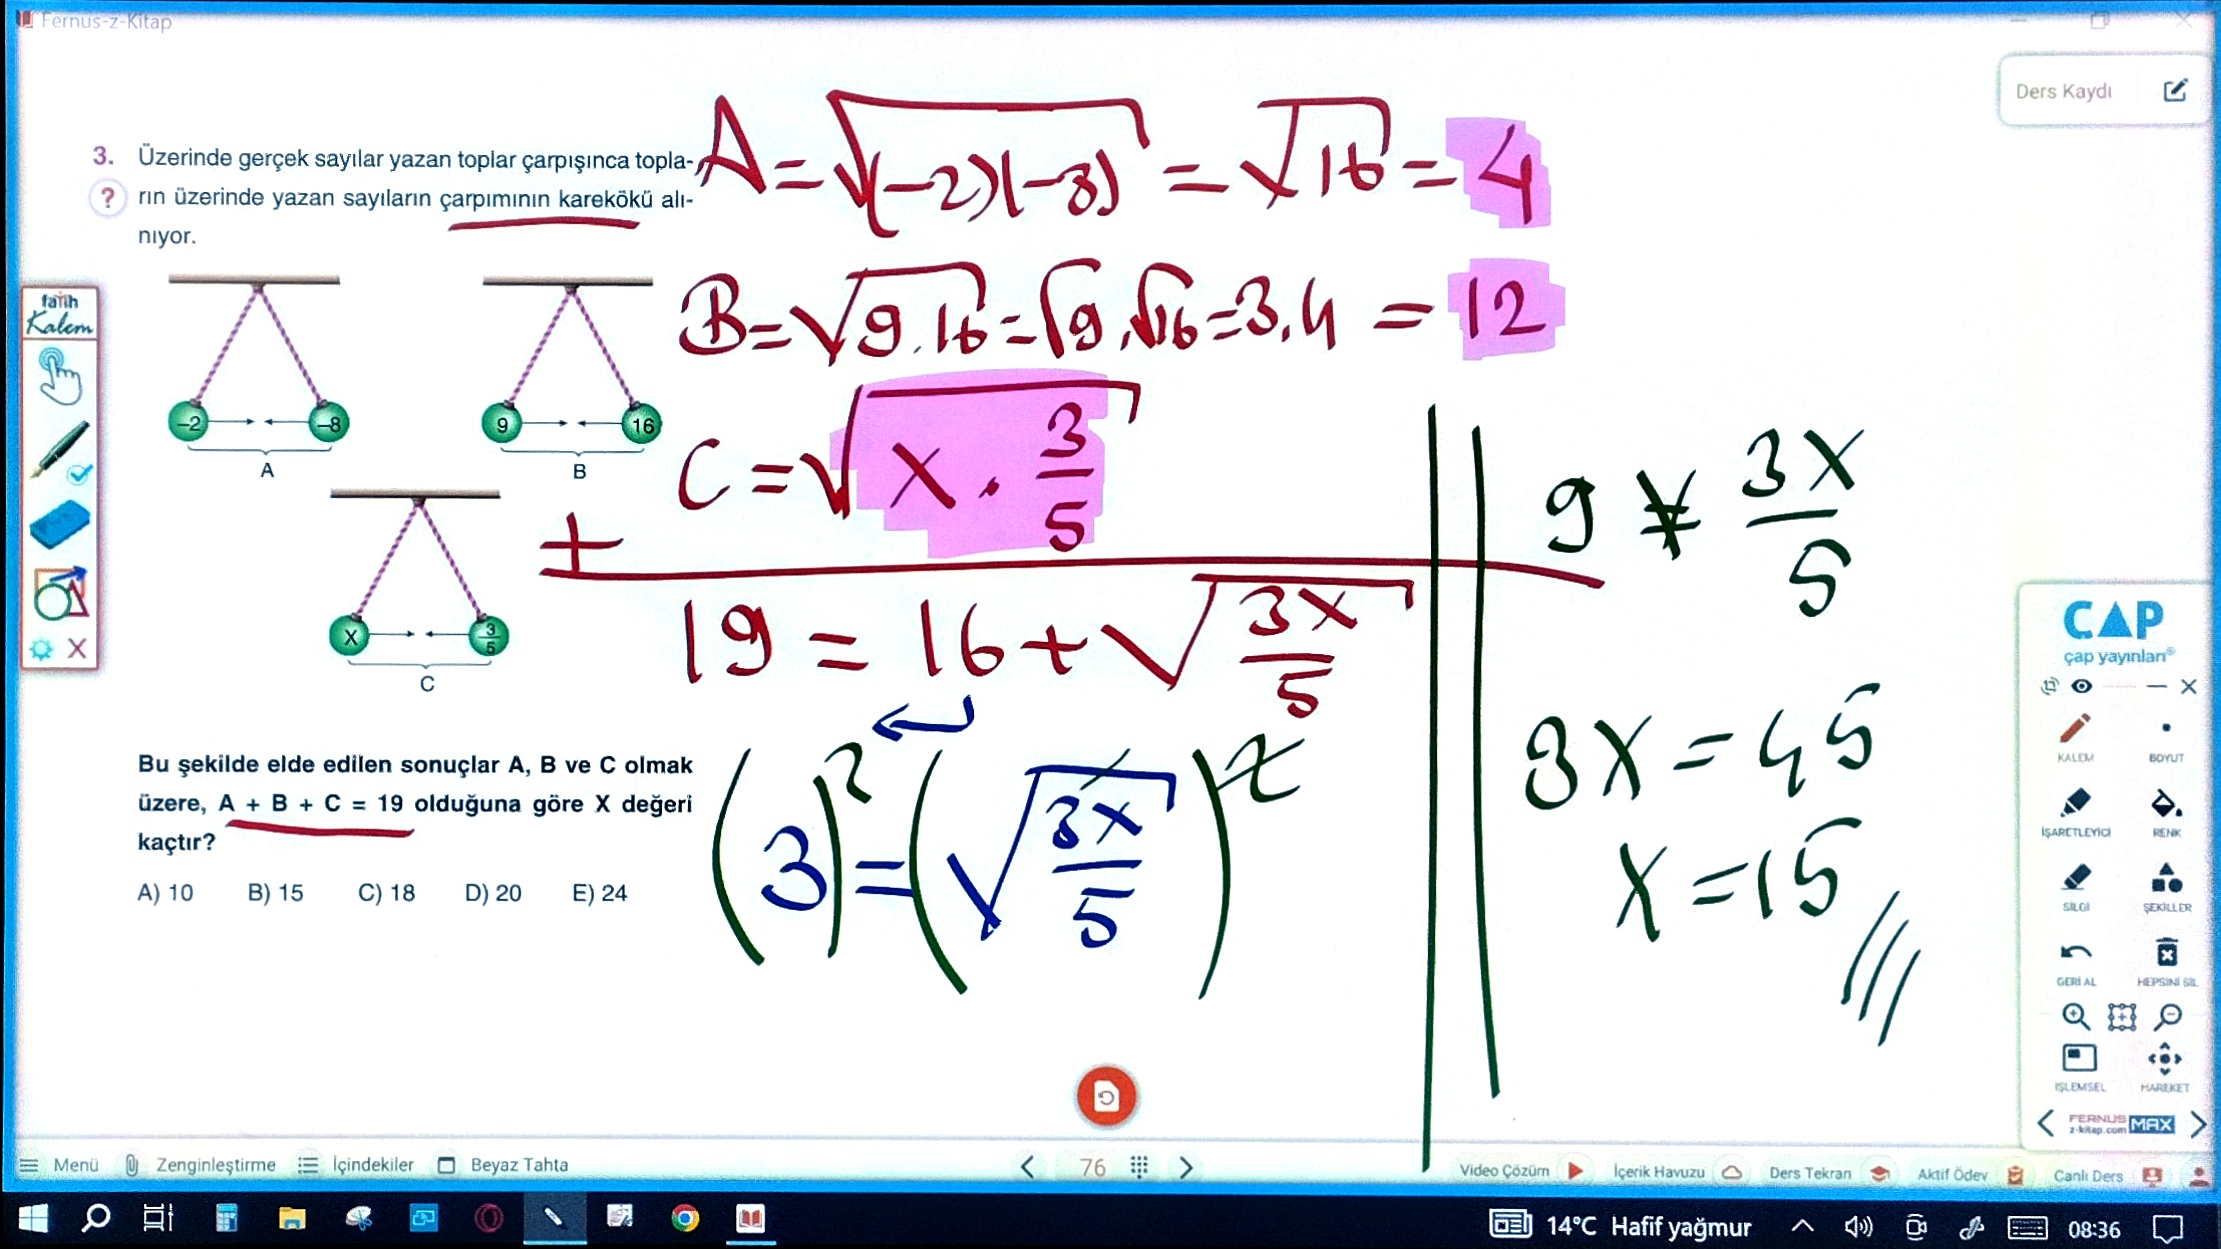 Fernus-z-Kitap
Ders Kaydı
3. Üzerinde gerçek sayılar yazan toplar çarpışınca topla-
? rın üzerinde yazan sayıların çarpımının karekökü alı-
nıyor.
A = √(-2)(-8) = √16 = 4
B = √9.16 = √9.√16 = 3.4 = 12
C = √x . 3/5
+
19 = 16 + √3x/5
(3)² = (√3x/5)²
9 = 3x/5
3x = 45
x = 15
fatih
Kalem
-2 -8
A
9 16
B
X 3/5
C
Bu şekilde elde edilen sonuçlar A, B ve C olmak
üzere, A + B + C = 19 olduğuna göre X değeri
kaçtır?
A) 10 B) 15 C) 18 D) 20 E) 24
ÇAP
çap yayınları®
KALEM BOYUT
İŞARETLEYİCİ RENK
SİLGİ ŞEKİLLER
GERİ AL HEPSİNİ SİL
İŞLEMSEL HAREKET
FERNUS
z-kitap.com MAX
Menü Zenginleştirme İçindekiler Beyaz Tahta 76 Video Çözüm İçerik Havuzu Ders Tekran Aktif Ödev Canlı Ders
14°C Hafif yağmur 08:36